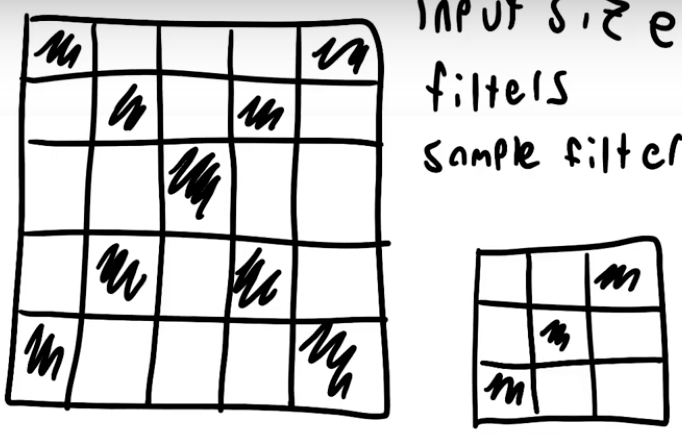 input size
filters
sample filter